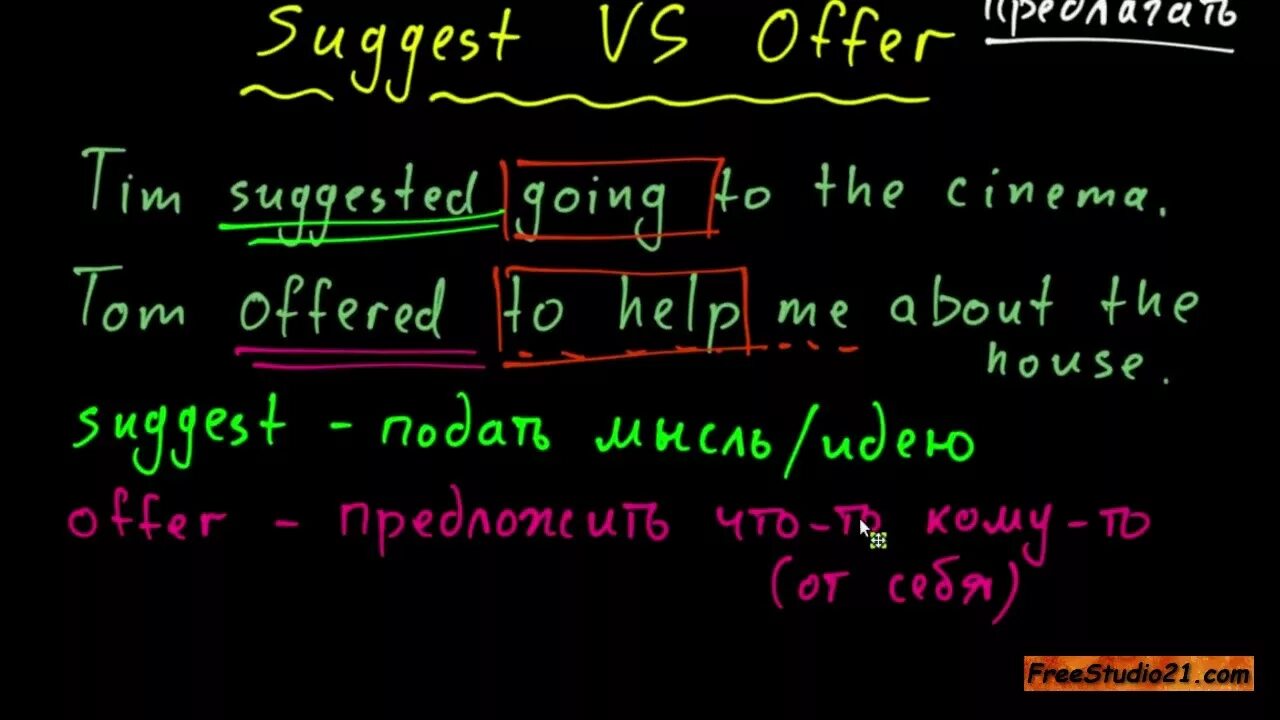 Предлагать
Suggest VS Offer
Tim suggested going to the cinema.
Tom offered to help me about the
house.
suggest - подать мысль/идею
offer - предложить что-то кому-то
(от себя)
FreeStudio21.com